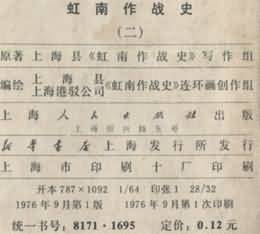 虹南作战史
(二)
原著 上海县《虹南作战史》写作组
编绘 上海县 上海港驳公司《虹南作战史》连环画创作组
上海人民出版社出版
新华书店上海发行所发行
上海市印刷十厂印刷
开本787×1092 1/64 印张1 28/32
1976年9月第1版 1976年9月第1次印刷
统一书号：8171·1695 定价：0.12元